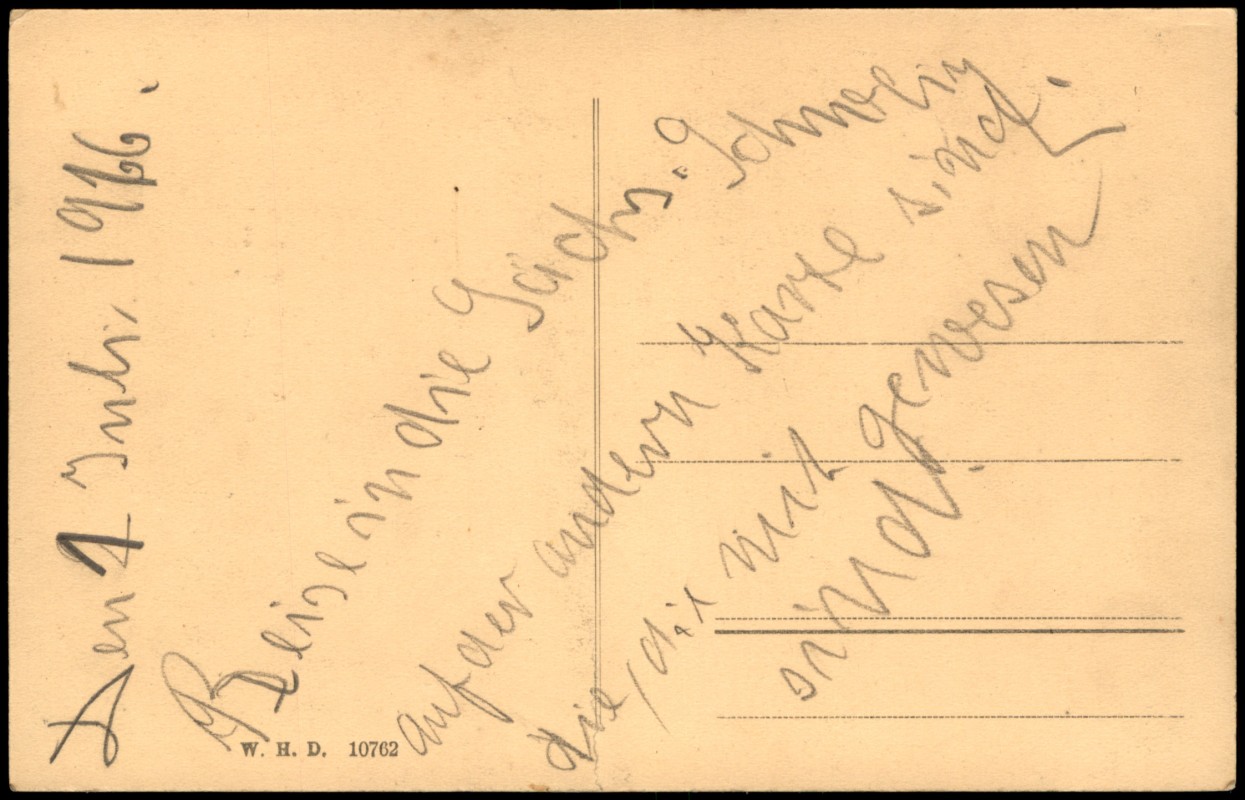 Den 1 Juli 1966.
Reise in die Sächs. Schweiz
auf der andern Karte sind.
die, die mit gewesen
sind.
W. H. D. 10762